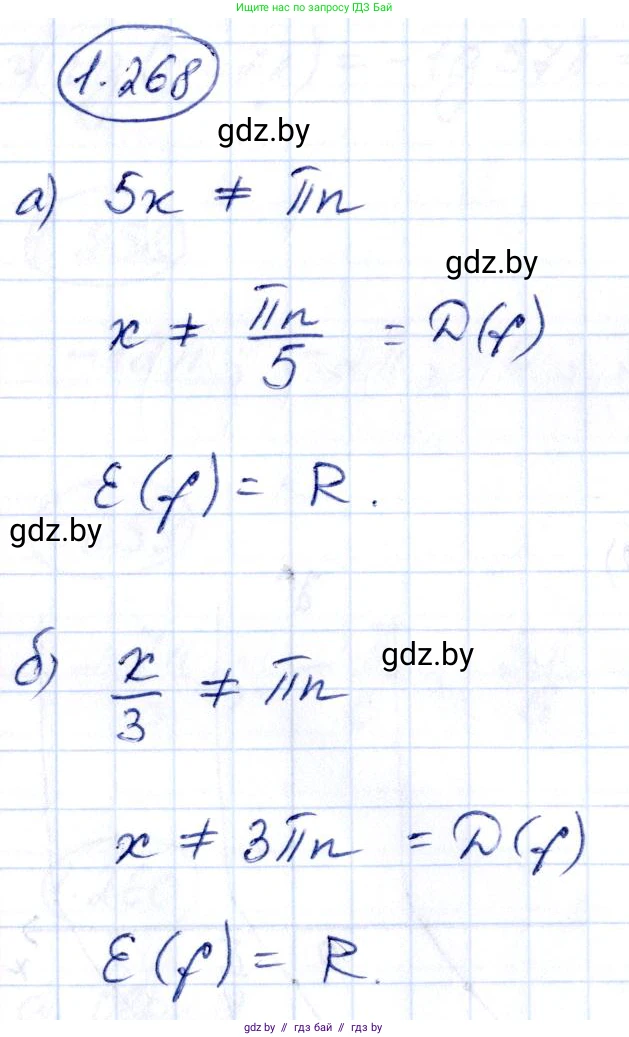 Ищите нас по запросу ГДЗ Бай
1.268
gdz.by
а) 5x ≠ πn
gdz.by
x ≠ πn/5 = D(f)
E(f) = R.
gdz.by
б) x/3 ≠ πn
gdz.by
x ≠ 3πn = D(f)
E(f) = R.
gdz.by // гдз бай // гдз by